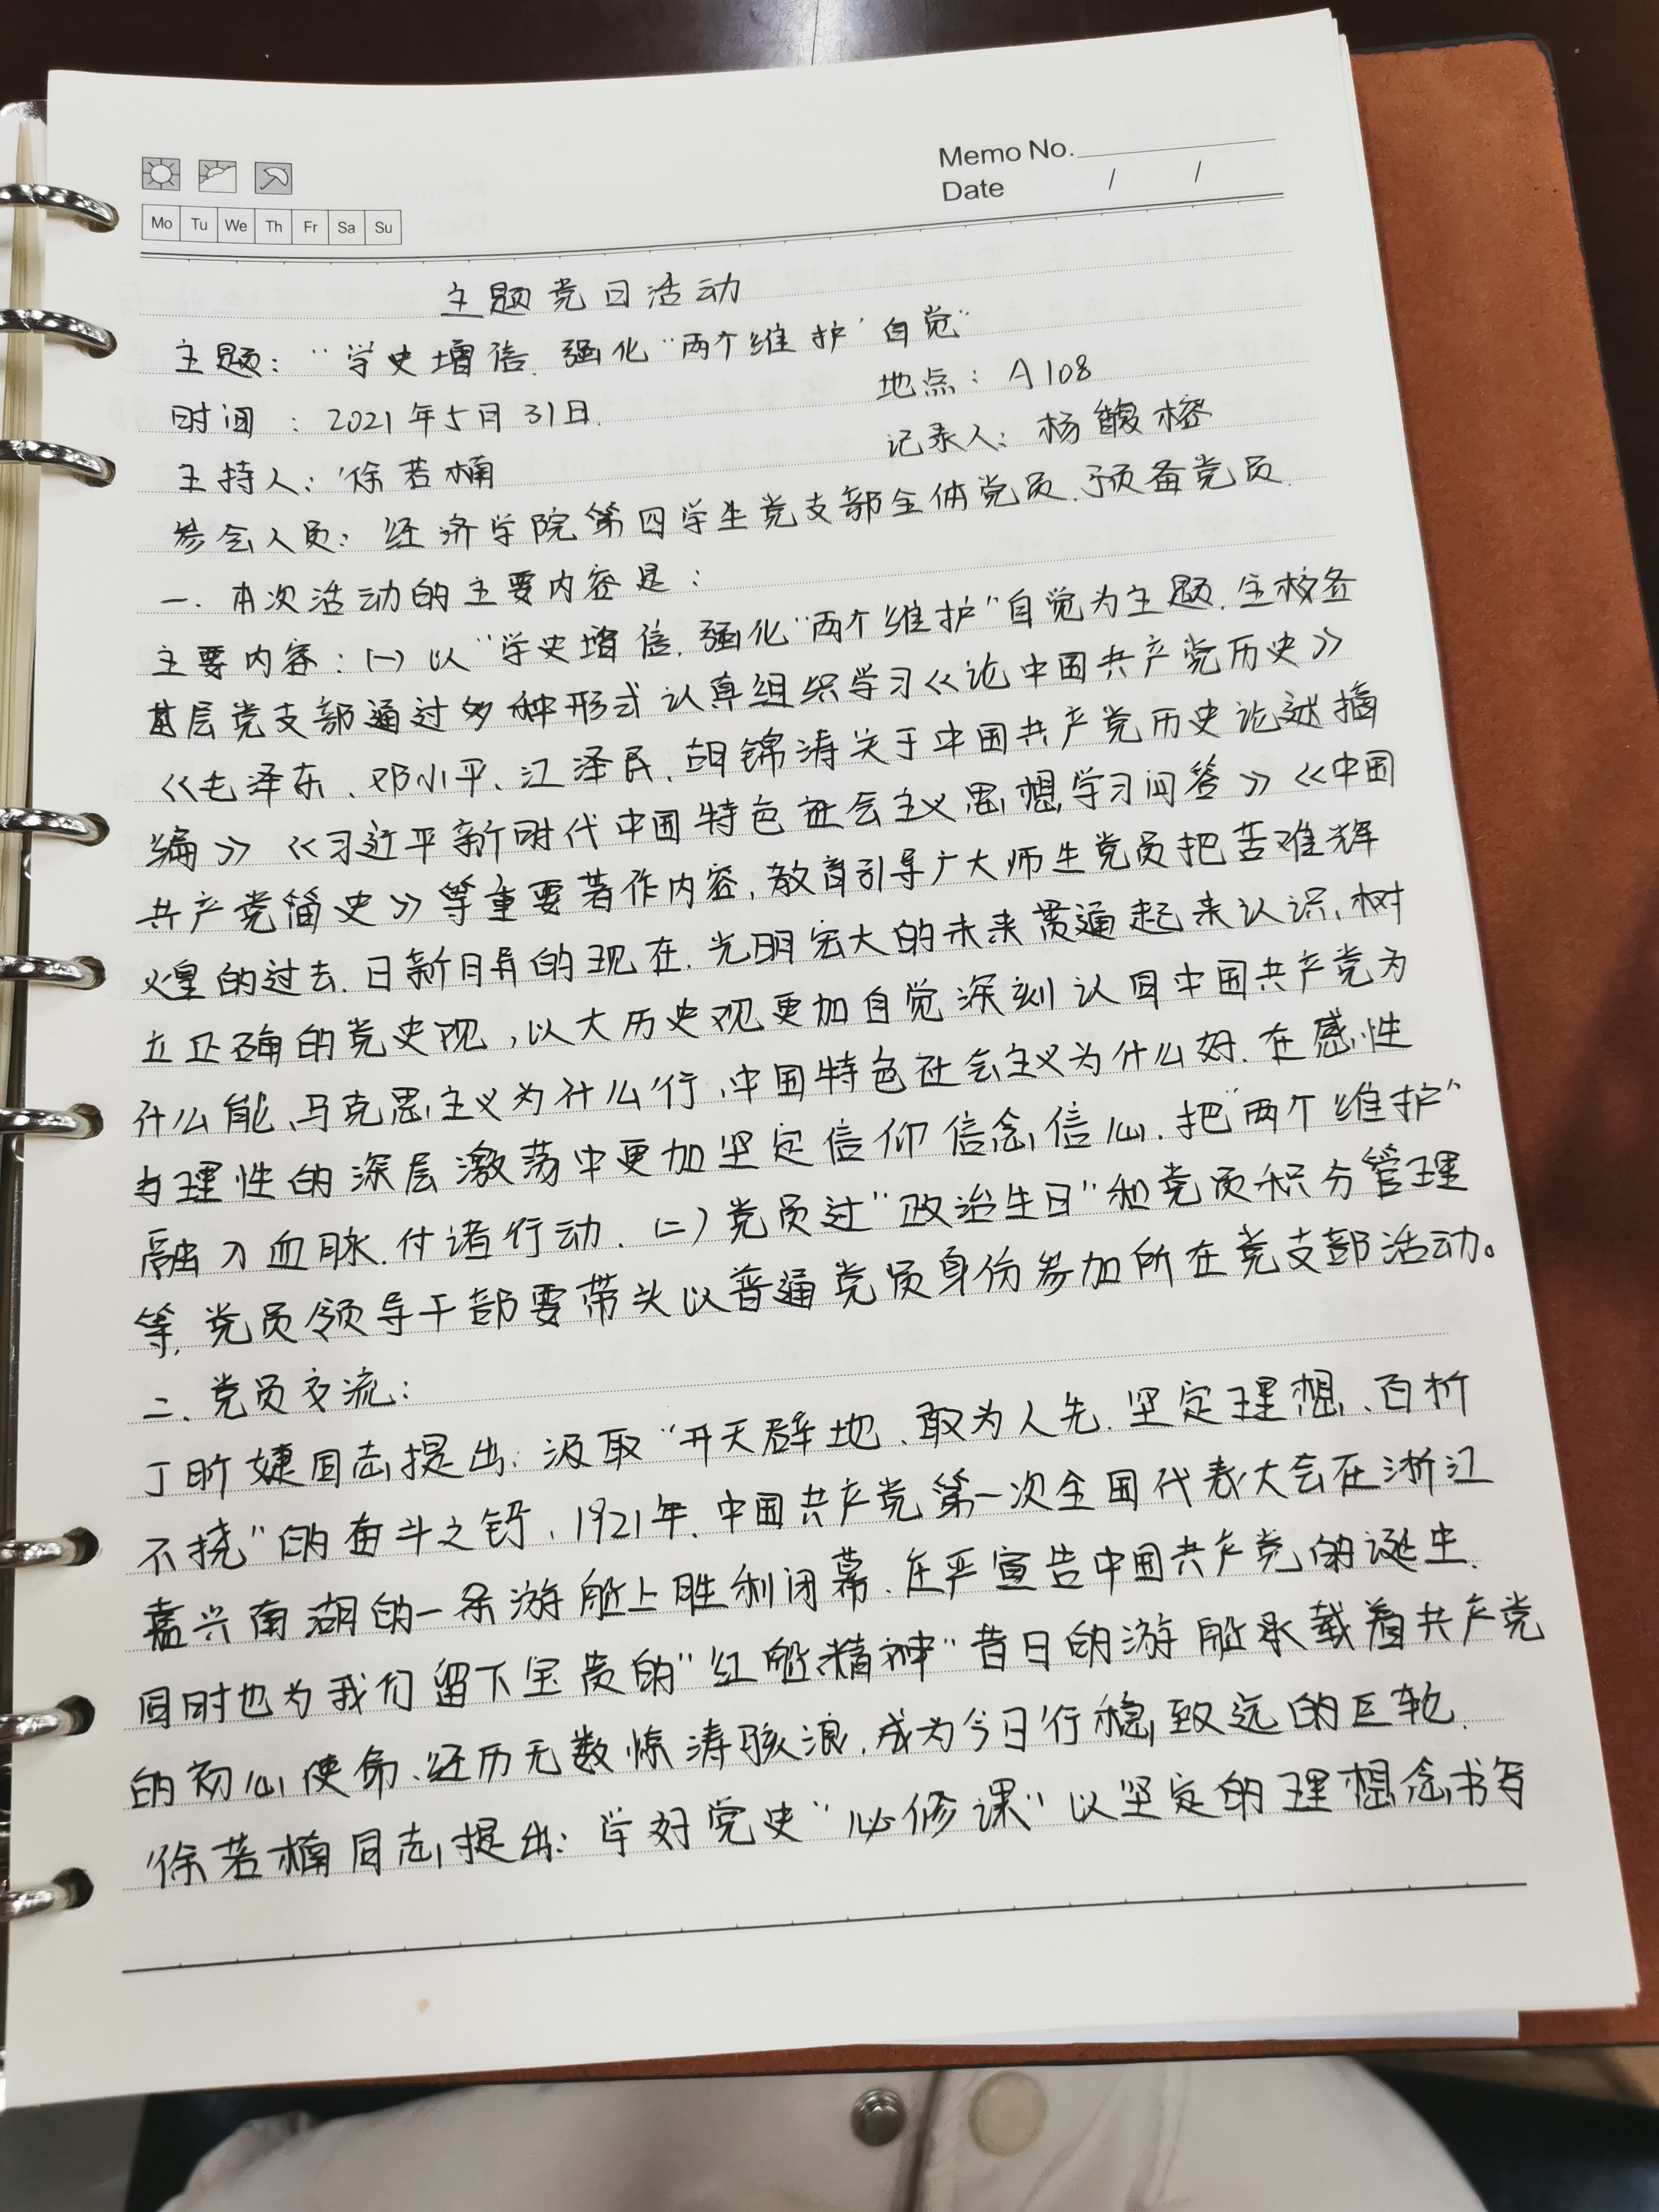 Memo No.
Date / /
Mo Tu We Th Fr Sa Su
主题党日活动
主题："学史增信、强化"两个维护"自觉"
时间：2021年5月31日.
地点：A108
主持人：徐若楠
记录人：杨馥榕
参会人员：经济学院第四学生党支部全体党员、预备党员.
一、本次活动的主要内容是：
主要内容：(一)以"学史增信、强化"两个维护"自觉为主题，全校各
基层党支部通过多种形式认真组织学习《论中国共产党历史》
《毛泽东、邓小平、江泽民、胡锦涛关于中国共产党历史论述摘
编》《习近平新时代中国特色社会主义思想学习问答》《中国
共产党简史》等重要著作内容，教育引导广大师生党员把苦难辉
煌的过去、日新月异的现在、光明宏大的未来贯通起来认识，树
立正确的党史观，以大历史观更加自觉深刻认同中国共产党为
什么能、马克思主义为什么行、中国特色社会主义为什么好、在感性
与理性的深层激荡中更加坚定信仰信念信心、把"两个维护"
融入血脉、付诸行动. (二)党员过"政治生日"和党员积分管理
等，党员领导干部要带头以普通党员身份参加所在党支部活动。
二、党员交流：
丁昕婕同志提出：汲取"开天辟地、敢为人先、坚定理想、百折
不挠"的奋斗之钙，1921年、中国共产党第一次全国代表大会在浙江
嘉兴南湖的一条游船上胜利闭幕、庄严宣告中国共产党的诞生.
同时也为我们留下宝贵的"红船精神"昔日的游船承载着共产党
的初心使命、经历无数惊涛骇浪，成为今日行稳致远的巨轮.
徐若楠同志提出：学好党史"必修课"以坚定的理想念书写